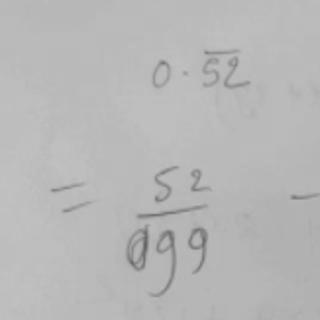 0.5̅2̅
= 52/99 -